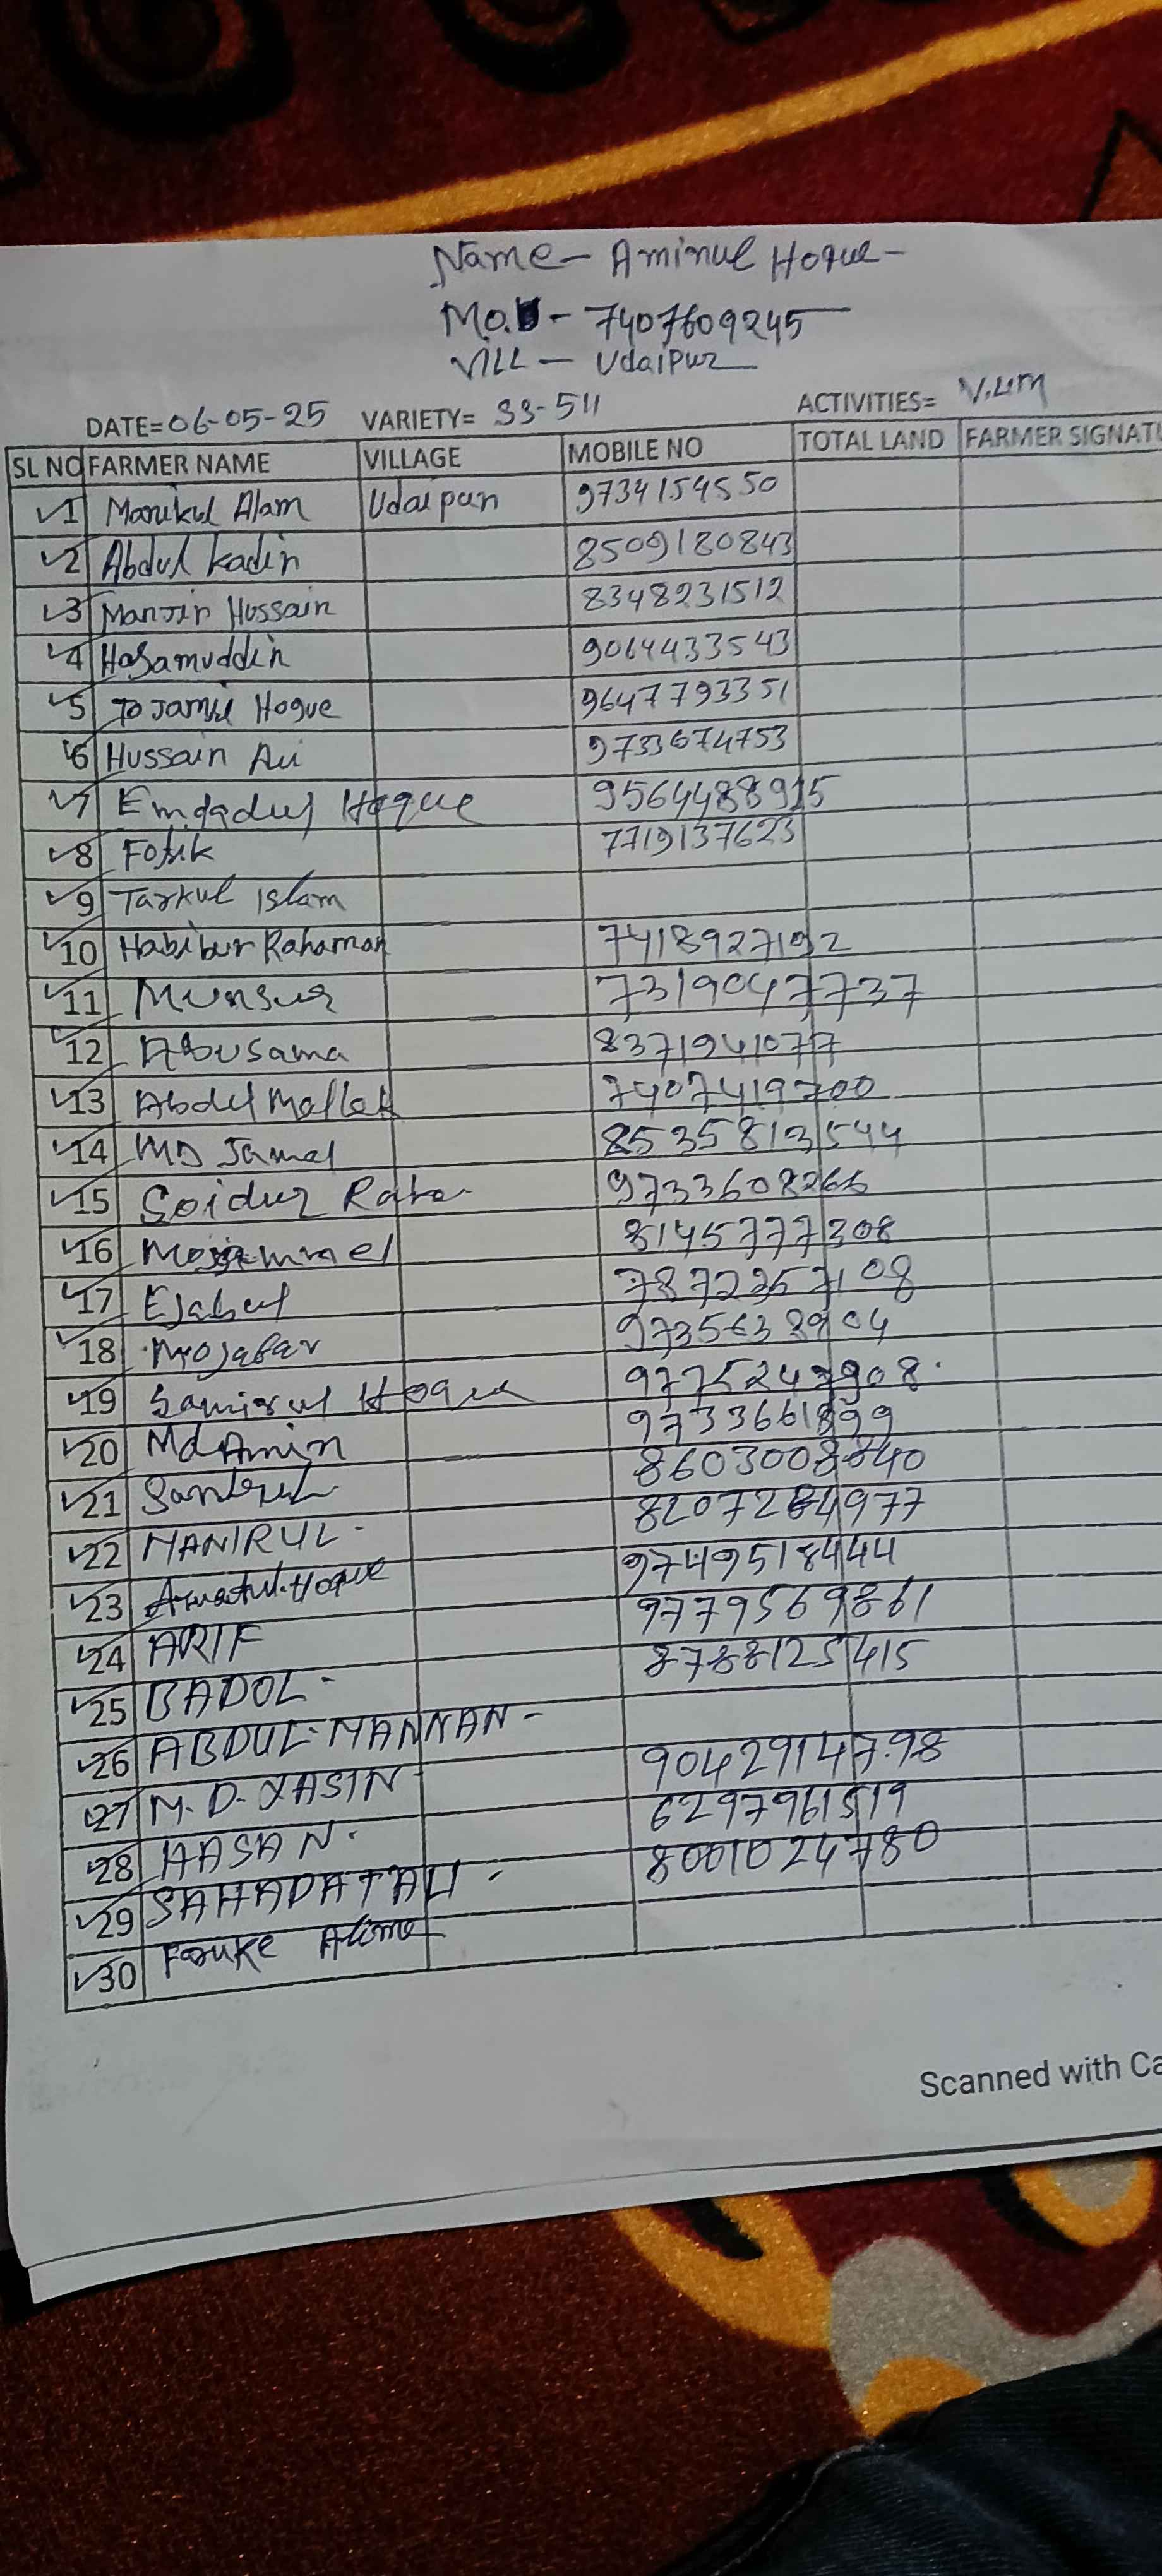 Name - Aminul Hoque -
Mo. - 7407609245
VILL - Udaipur
DATE= 06-05-25 VARIETY= SS-511 ACTIVITIES= V.um
SL NO FARMER NAME VILLAGE MOBILE NO TOTAL LAND FARMER SIGNATU
1 Manikul Alam Udaipur 9734154550
2 Abdul Kadir 8509180843
3 Manjir Hussain 8348231512
4 Hasamuddin 9064433543
5 Tojamil Hogue 9647793351
6 Hussain Ali 9733674753
7 Emdadul Hoque 9564488915
8 Fofik 7719137623
9 Tarkul Islam
10 Habibur Rahaman 7418927192
11 Munsur 73190477737
12 Abusama 8371941077
13 Abdul Mallek 7407419700
14 MD Jamal 8535813544
15 Soidur Raha 9733608266
16 Mojammel 8145777308
17 Ejabul 7872257108
18 Mojafar 9735638904
19 Samirul Hoque 9775247908.
20 Md Amin 9733661899
21 8603008840
22 MANIRUL. 8207284977
23 Hoque 9749518444
24 ARIF 9779569861
25 BADOL - 8788125415
26 ABDUL-MANNAN -
27 M.D. YASIN 9042914798
28 HASAN. 6297961519
29 SAHADAT ALI - 8001024780
30 Faruke Alime
Scanned with Ca